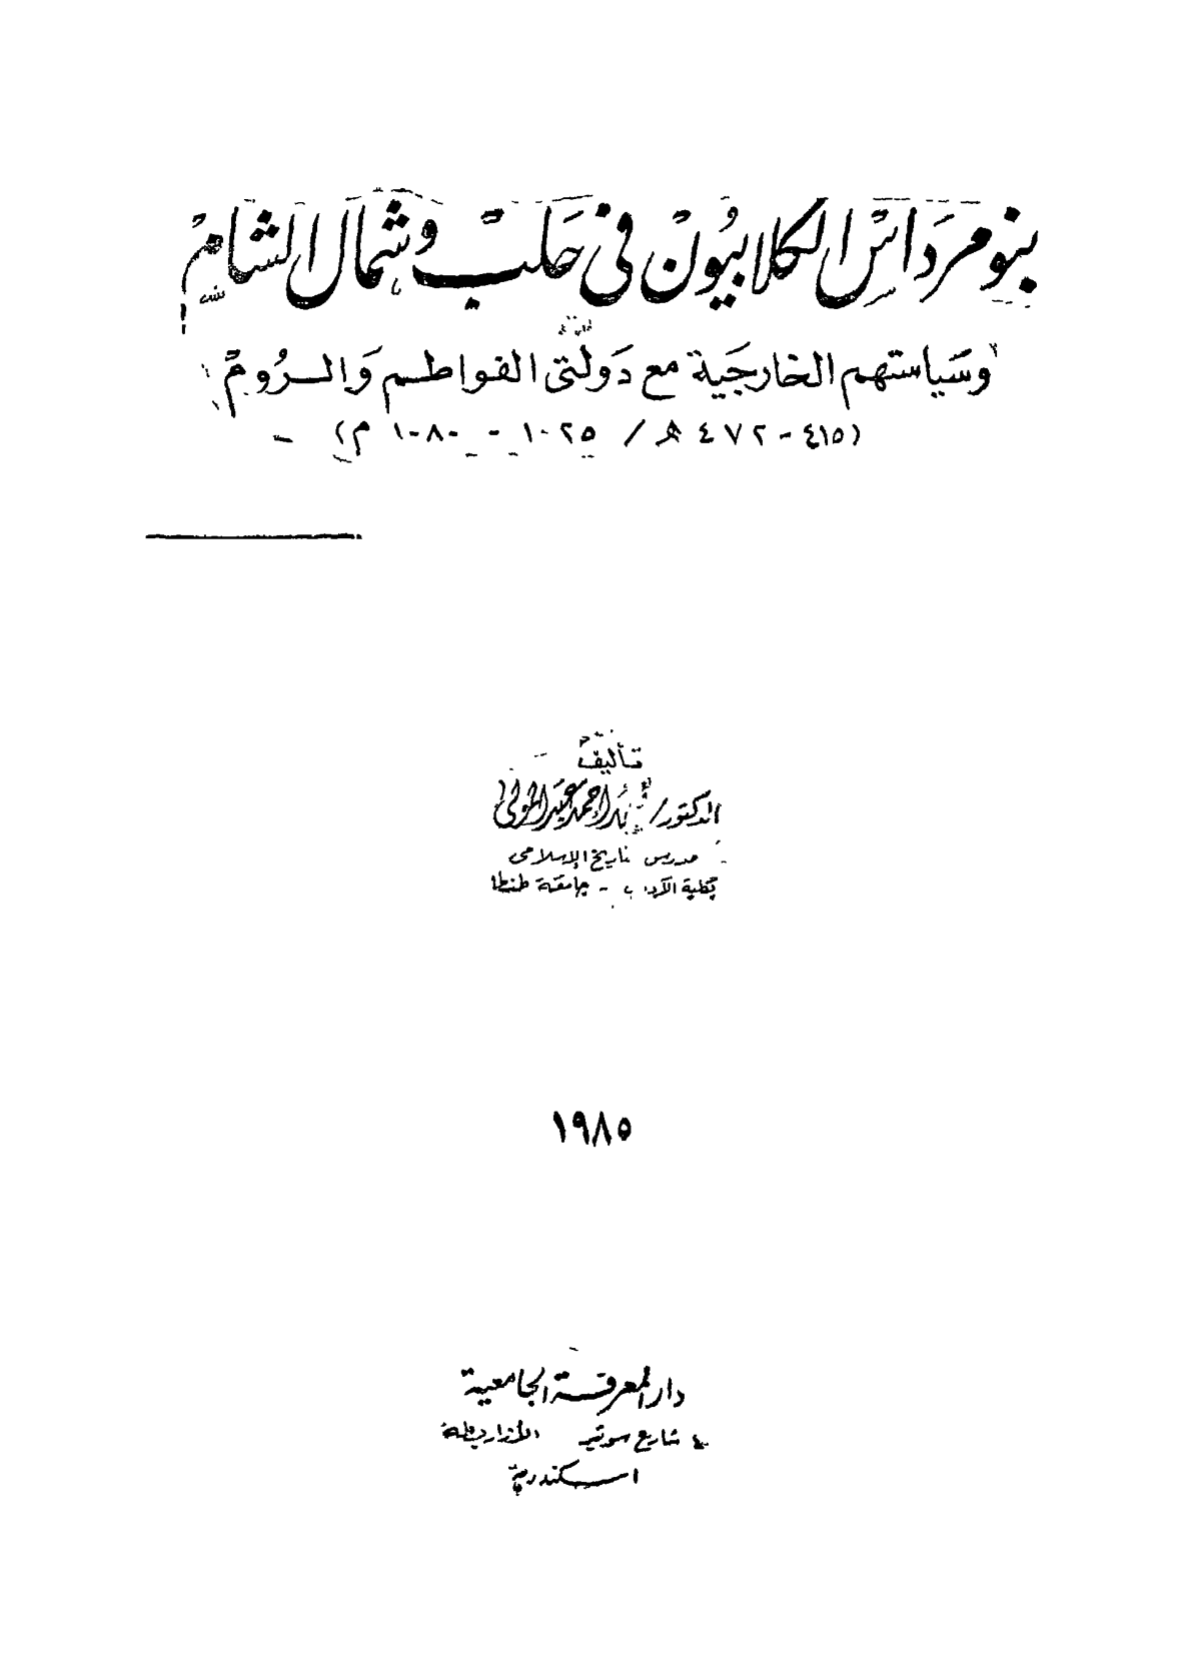 بنو مرداس الكلابيون فى حلب وشمال الشام
وسياستهم الخارجية مع دولتى الفواطم والروم
(٤١٥ - ٤٧٢ هـ / ١٠٢٥ - ١٠٨٠ م)
تأليف
الدكتور / أحمد عبد المولى
مدرس تاريخ الإسلامى
بكلية الآداب - جامعة طنطا
١٩٨٥
دار المعرفة الجامعية
٤٠ شارع سوتير الأزاريطة
اسكندرية